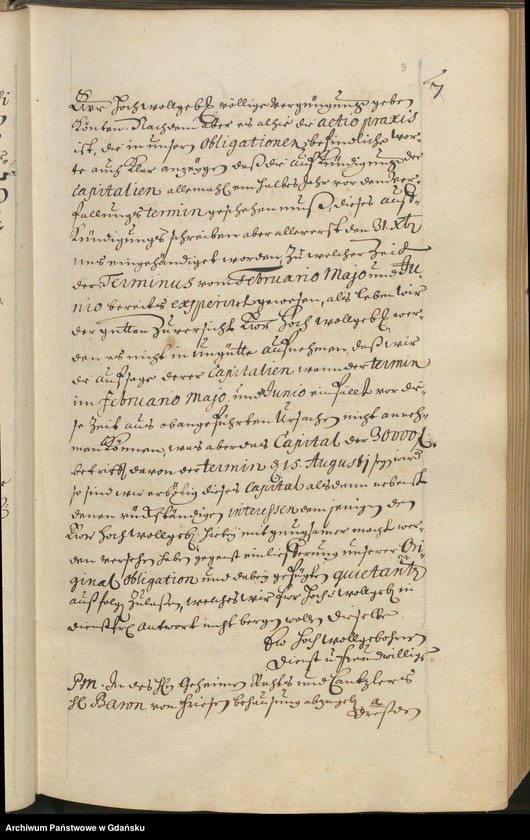 9
7
Eür Hochwollgeb. völlige vergnügung geben
könten. Nachdem aber es alhie die actio praxis
ist, die in unsern Obligationen befindliche wor-
te auch klar anzeygen daß die auffkündigung der
Capitalien allemahl ein halbes Jahr vor dem ver-
fallungs termin geschehen muß, dieses auff-
kündigungs schreiben aber allererst den 31. Xbr
uns eingehändiget worden, zu welcher Zeit
der Terminus vom Februario Majo und Ju-
nio bereits expiriret gewesen, als leben wir
der gutten Zuversicht Eür Hoch wollgeb. wer-
den es nicht in Ungütte auffnehmen, daß wir
die auffsage derer Capitalien wann der termin
im Februario Majo, und Junio einfällt vor die-
se Zeit aus obangeführten Ursachen nicht anneh-
men können, was aber das Capital der 30000
betrifft davon der termin d 15. Augusti seyn wird
so sind wir erbötig dieses Capital alsdann nebenst
denen rückständigen interessen demjenigen den
Eür Hoch wollgeb. hiezu mit gnugsamer macht wer-
den versehen haben gegenst einlieferung unserer Ori-
ginal obligation und dabey gefügten quietantz
ausfolgen zulassen, welches wir Eür Hochwollgeb. in
dienstfr. Antwort nicht bergen wollen dieselbe
Ew Hoch wollgebohrnen
Dienst u freundwillige
PM. In des H. Geheimen Rahts und Cantzlers
H. Baron von Friesen behausung abzugeb.
a Dresden
Archiwum Państwowe w Gdańsku